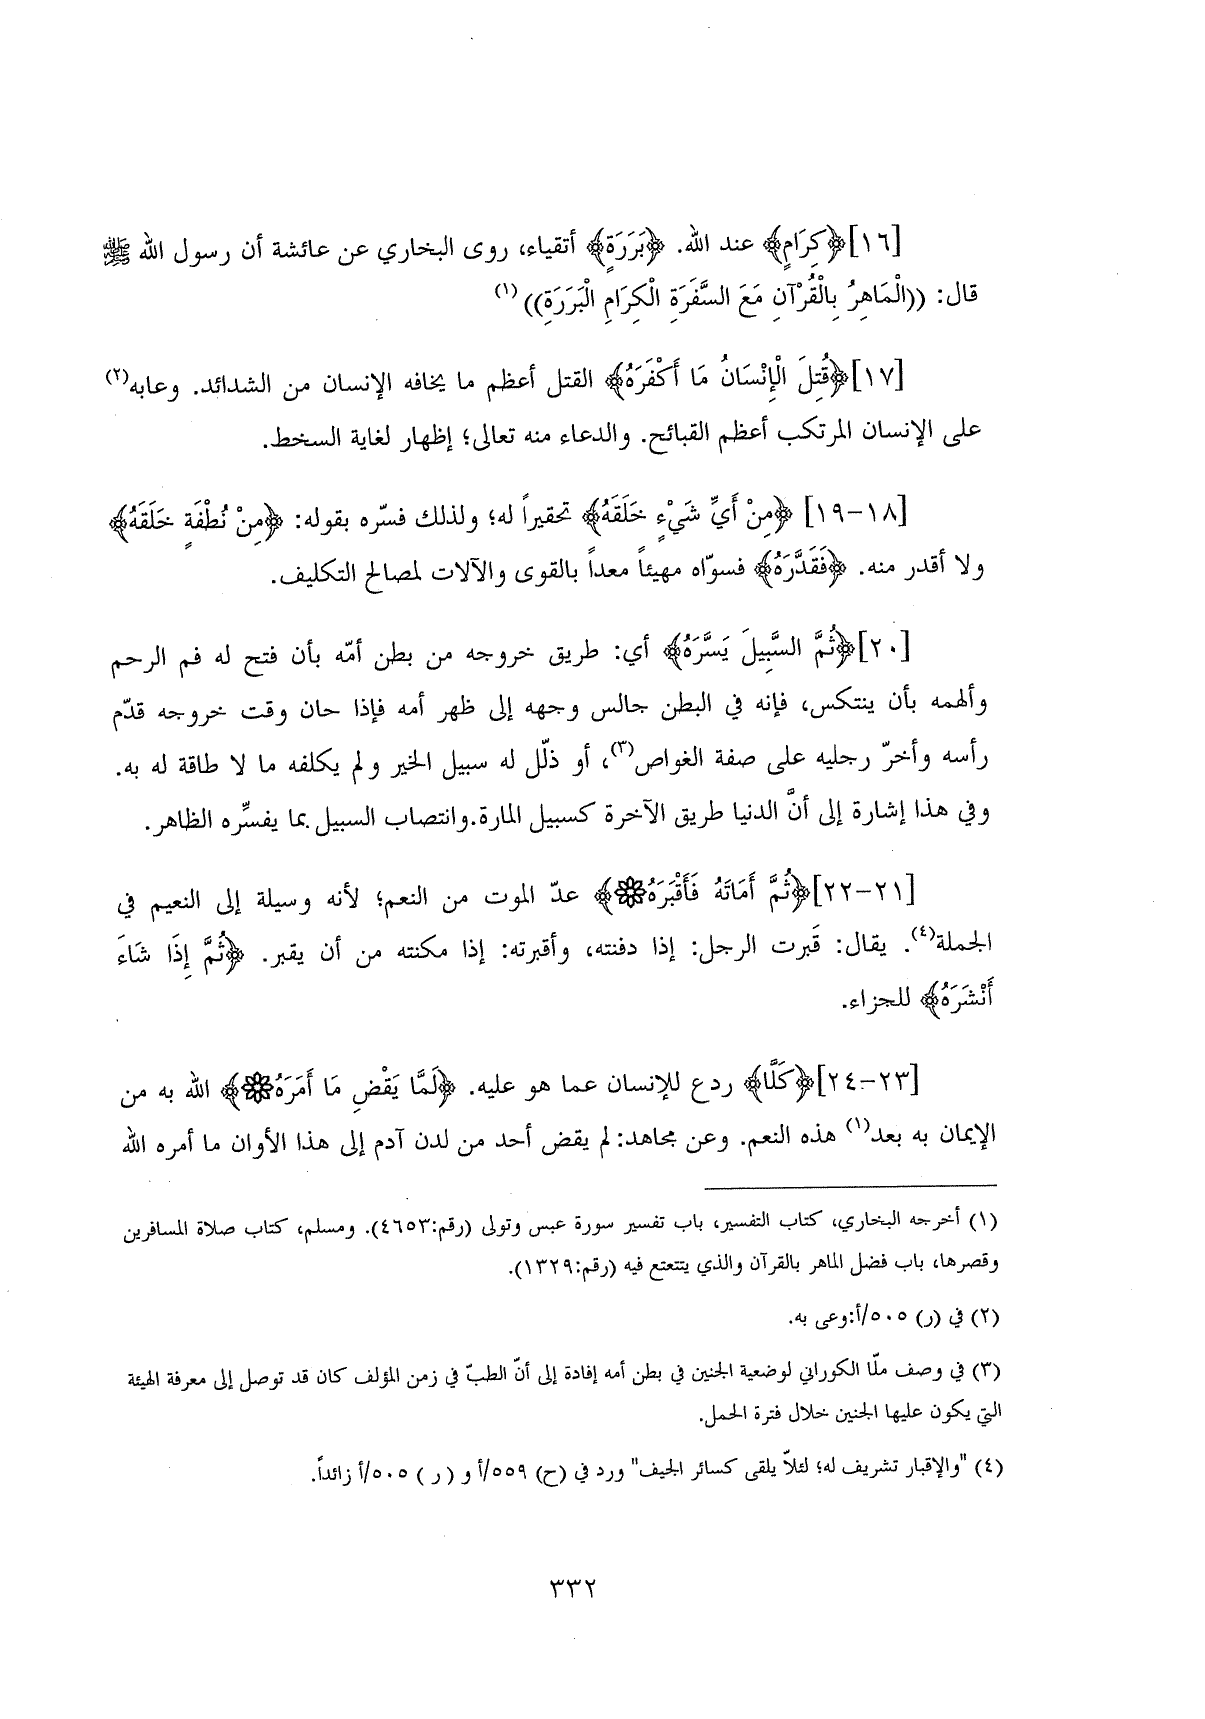 [١٦]﴿كِرَامٍ﴾ عند الله. ﴿بَرَرَةٍ﴾ أتقياء، روى البخاري عن عائشة أن رسول الله ﷺ
قال: ((الْمَاهِرُ بِالْقُرْآنِ مَعَ السَّفَرَةِ الْكِرَامِ الْبَرَرَةِ)) (١)
[١٧]﴿قُتِلَ الْإِنْسَانُ مَا أَكْفَرَهُ﴾ القتل أعظم ما يخافه الإنسان من الشدائد. وعابه(٢)
على الإنسان المرتكب أعظم القبائح. والدعاء منه تعالى؛ إظهار لغاية السخط.
[١٨-١٩] ﴿مِنْ أَيِّ شَيْءٍ خَلَقَهُ﴾ تحقيراً له؛ ولذلك فسّره بقوله: ﴿مِنْ نُطْفَةٍ خَلَقَهُ﴾
ولا أقدر منه. ﴿فَقَدَّرَهُ﴾ فسوّاه مهيئاً معداً بالقوى والآلات لمصالح التكليف.
[٢٠]﴿ثُمَّ السَّبِيلَ يَسَّرَهُ﴾ أي: طريق خروجه من بطن أمّه بأن فتح له فم الرحم
وألهمه بأن ينتكس، فإنه في البطن جالس وجهه إلى ظهر أمه فإذا حان وقت خروجه قدّم
رأسه وأخرّ رجليه على صفة الغواص(٣)، أو ذلّل له سبيل الخير ولم يكلفه ما لا طاقة له به.
وفي هذا إشارة إلى أنَّ الدنيا طريق الآخرة كسبيل المارة.وانتصاب السبيل بما يفسِّره الظاهر.
[٢١-٢٢]﴿ثُمَّ أَمَاتَهُ فَأَقْبَرَهُ۝﴾ عدّ الموت من النعم؛ لأنه وسيلة إلى النعيم في
الجملة(٤). يقال: قَبرت الرجل: إذا دفنته، وأقبرته: إذا مكنته من أن يقبر. ﴿ثُمَّ إِذَا شَاءَ
أَنْشَرَهُ﴾ للجزاء.
[٢٣-٢٤]﴿كَلَّا﴾ ردع للإنسان عما هو عليه. ﴿لَمَّا يَقْضِ مَا أَمَرَهُ۝﴾ الله به من
الإيمان به بعد(١) هذه النعم. وعن مجاهد: لم يقض أحد من لدن آدم إلى هذا الأوان ما أمره الله
(١) أخرجه البخاري، كتاب التفسير، باب تفسير سورة عبس وتولى (رقم:٤٦٥٣). ومسلم، كتاب صلاة المسافرين
وقصرها، باب فضل الماهر بالقرآن والذي يتتعتع فيه (رقم:١٣٢٩).
(٢) في (ر) ٥٠٥/أ:وعى به.
(٣) في وصف ملّا الكوراني لوضعية الجنين في بطن أمه إفادة إلى أنّ الطبّ في زمن المؤلف كان قد توصل إلى معرفة الهيئة
التي يكون عليها الجنين خلال فترة الحمل.
(٤) "والإقبار تشريف له؛ لئلاّ يلقى كسائر الجيف" ورد في (ح) ٥٥٩/أ و ( ر ) ٥٠٥/أ زائداً.
٣٣٢